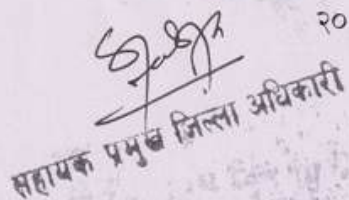 २०
सहायक प्रमुख जिल्ला अधिकारी